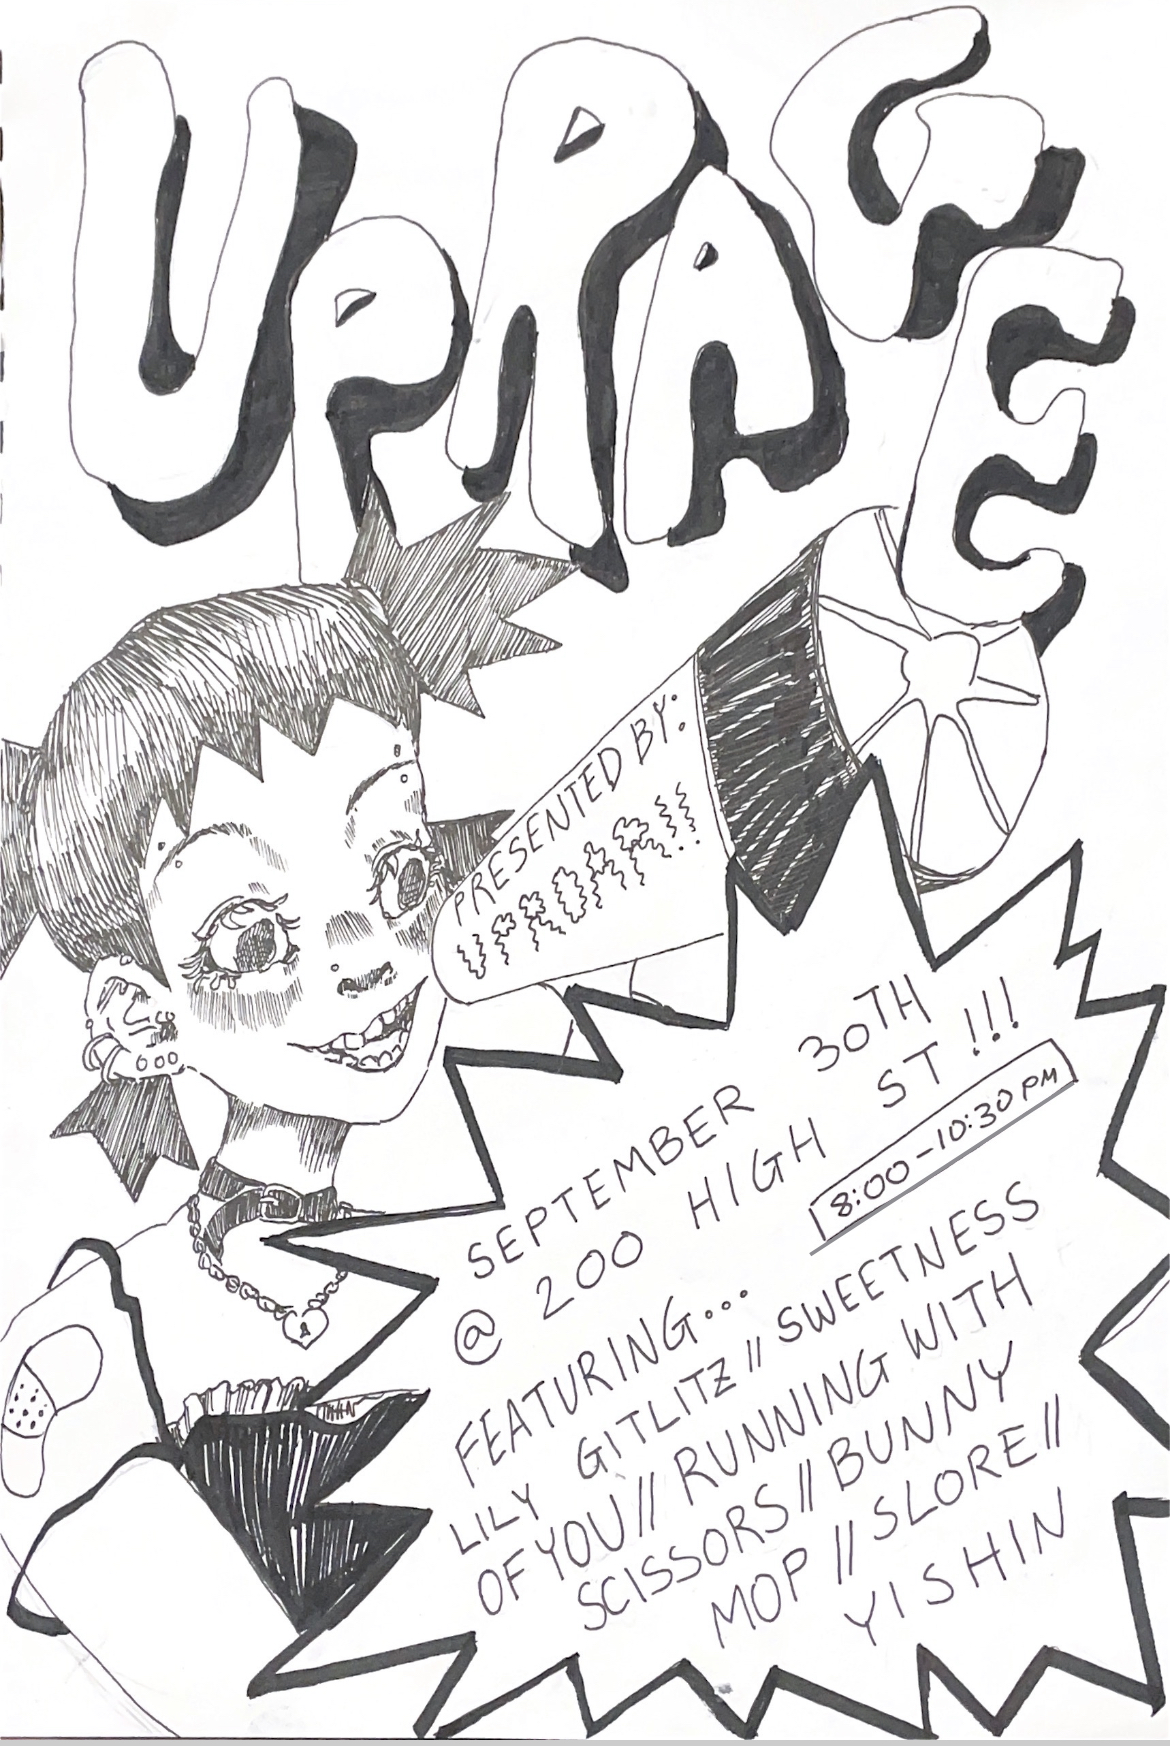 UPRAGE
PRESENTED BY:
UPROAR!!
SEPTEMBER 30TH
@ 200 HIGH ST!!!
8:00-10:30PM
FEATURING...
LILY GITLITZ // SWEETNESS
OF YOU // RUNNING WITH
SCISSORS // BUNNY
MOP // SLORE //
YISHIN